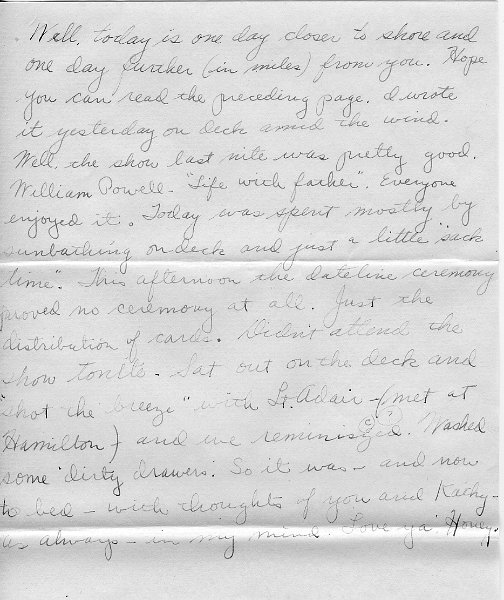 Well, today is one day closer to shore and
one day further (in miles) from you. Hope
you can read the preceding page. I wrote
it yesterday on deck amid the wind.
Well, the show last nite was pretty good.
William Powell - "Life with father". Everyone
enjoyed it. Today was spent mostly by
sunbathing on deck and just a little "sack
time". This afternoon the dateline ceremony
proved no ceremony at all. Just the
distribution of cards. Didn't attend the
show tonite. Sat out on the deck and
"shot the breeze" with Lt. Adair - (met at
Hamilton) and we reminiszed. Washed
some "dirty drawers". So it was - and now
to bed - with thoughts of you and Kathy -
as always - in my mind. Love ya' Honey.